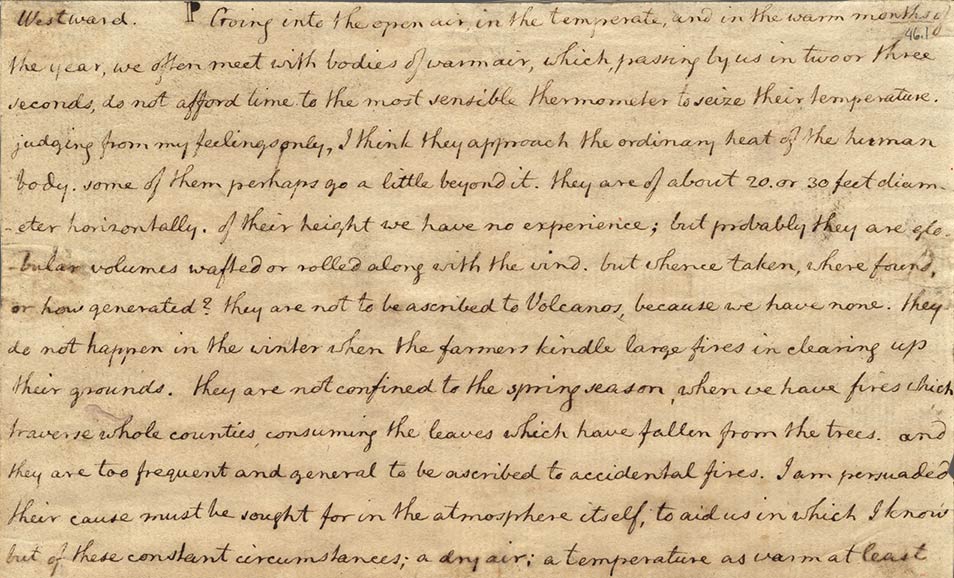 Westward. P Going into the open air, in the temperate, and in the warm months of
46.1
the year, we often meet with bodies of warm air, which, passing by us in two or three
seconds, do not afford time to the most sensible thermometer to seize their temperature.
judging from my feelings only, I think they approach the ordinary heat of the human
body. some of them perhaps go a little beyond it. they are of about 20. or 30 feet diam-
-eter horizontally. of their height we have no experience; but probably they are glo-
-bular volumes wafted or rolled along with the wind. but whence taken, where found,
or how generated? they are not to be ascribed to Volcanos, because we have none. they
do not happen in the winter when the farmers kindle large fires in clearing up
their grounds. they are not confined to the spring season, when we have fires which
traverse whole counties, consuming the leaves which have fallen from the trees. and
they are too frequent and general to be ascribed to accidental fires. I am persuaded
their cause must be sought for in the atmosphere itself, to aid us in which I know
but of these constant circumstances; a dry air; a temperature as warm at least